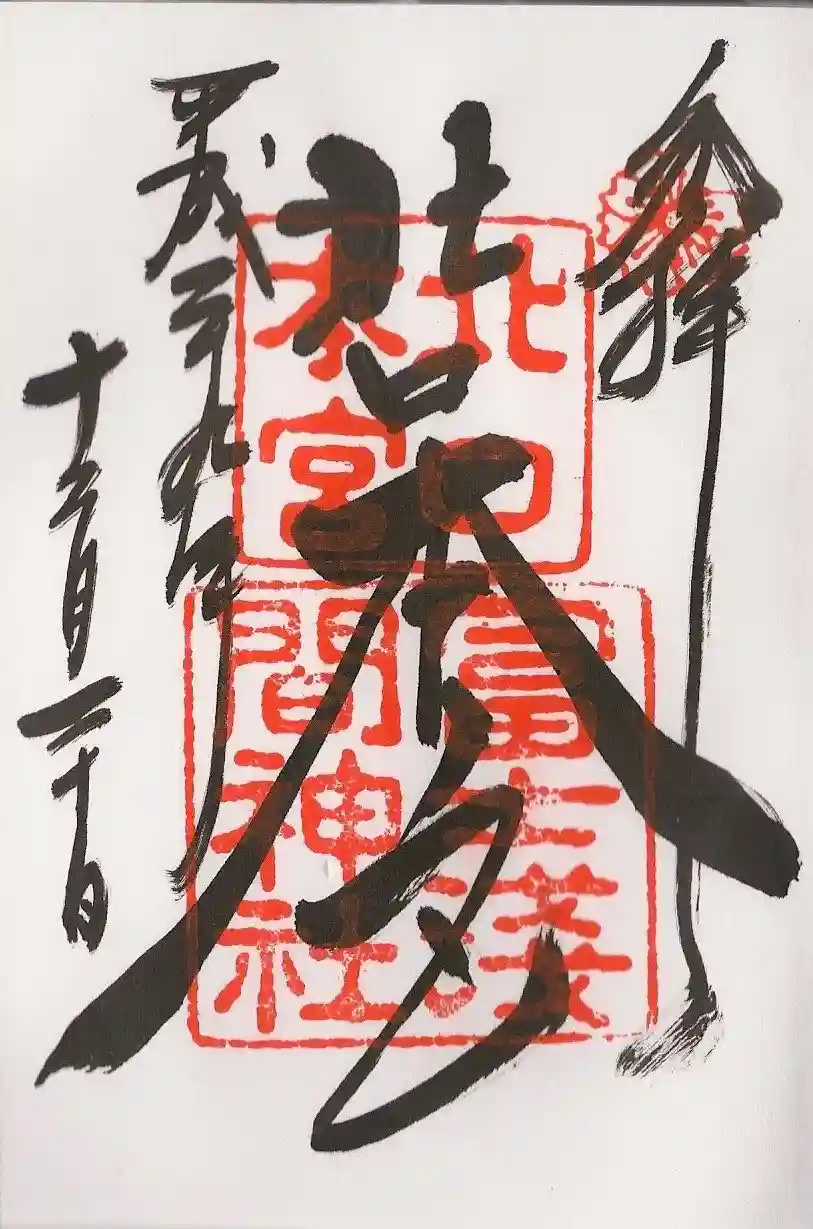 奉拝
北口本宮
平成二十九年
十二月二十日
北口
本宮
冨士淺
間神社